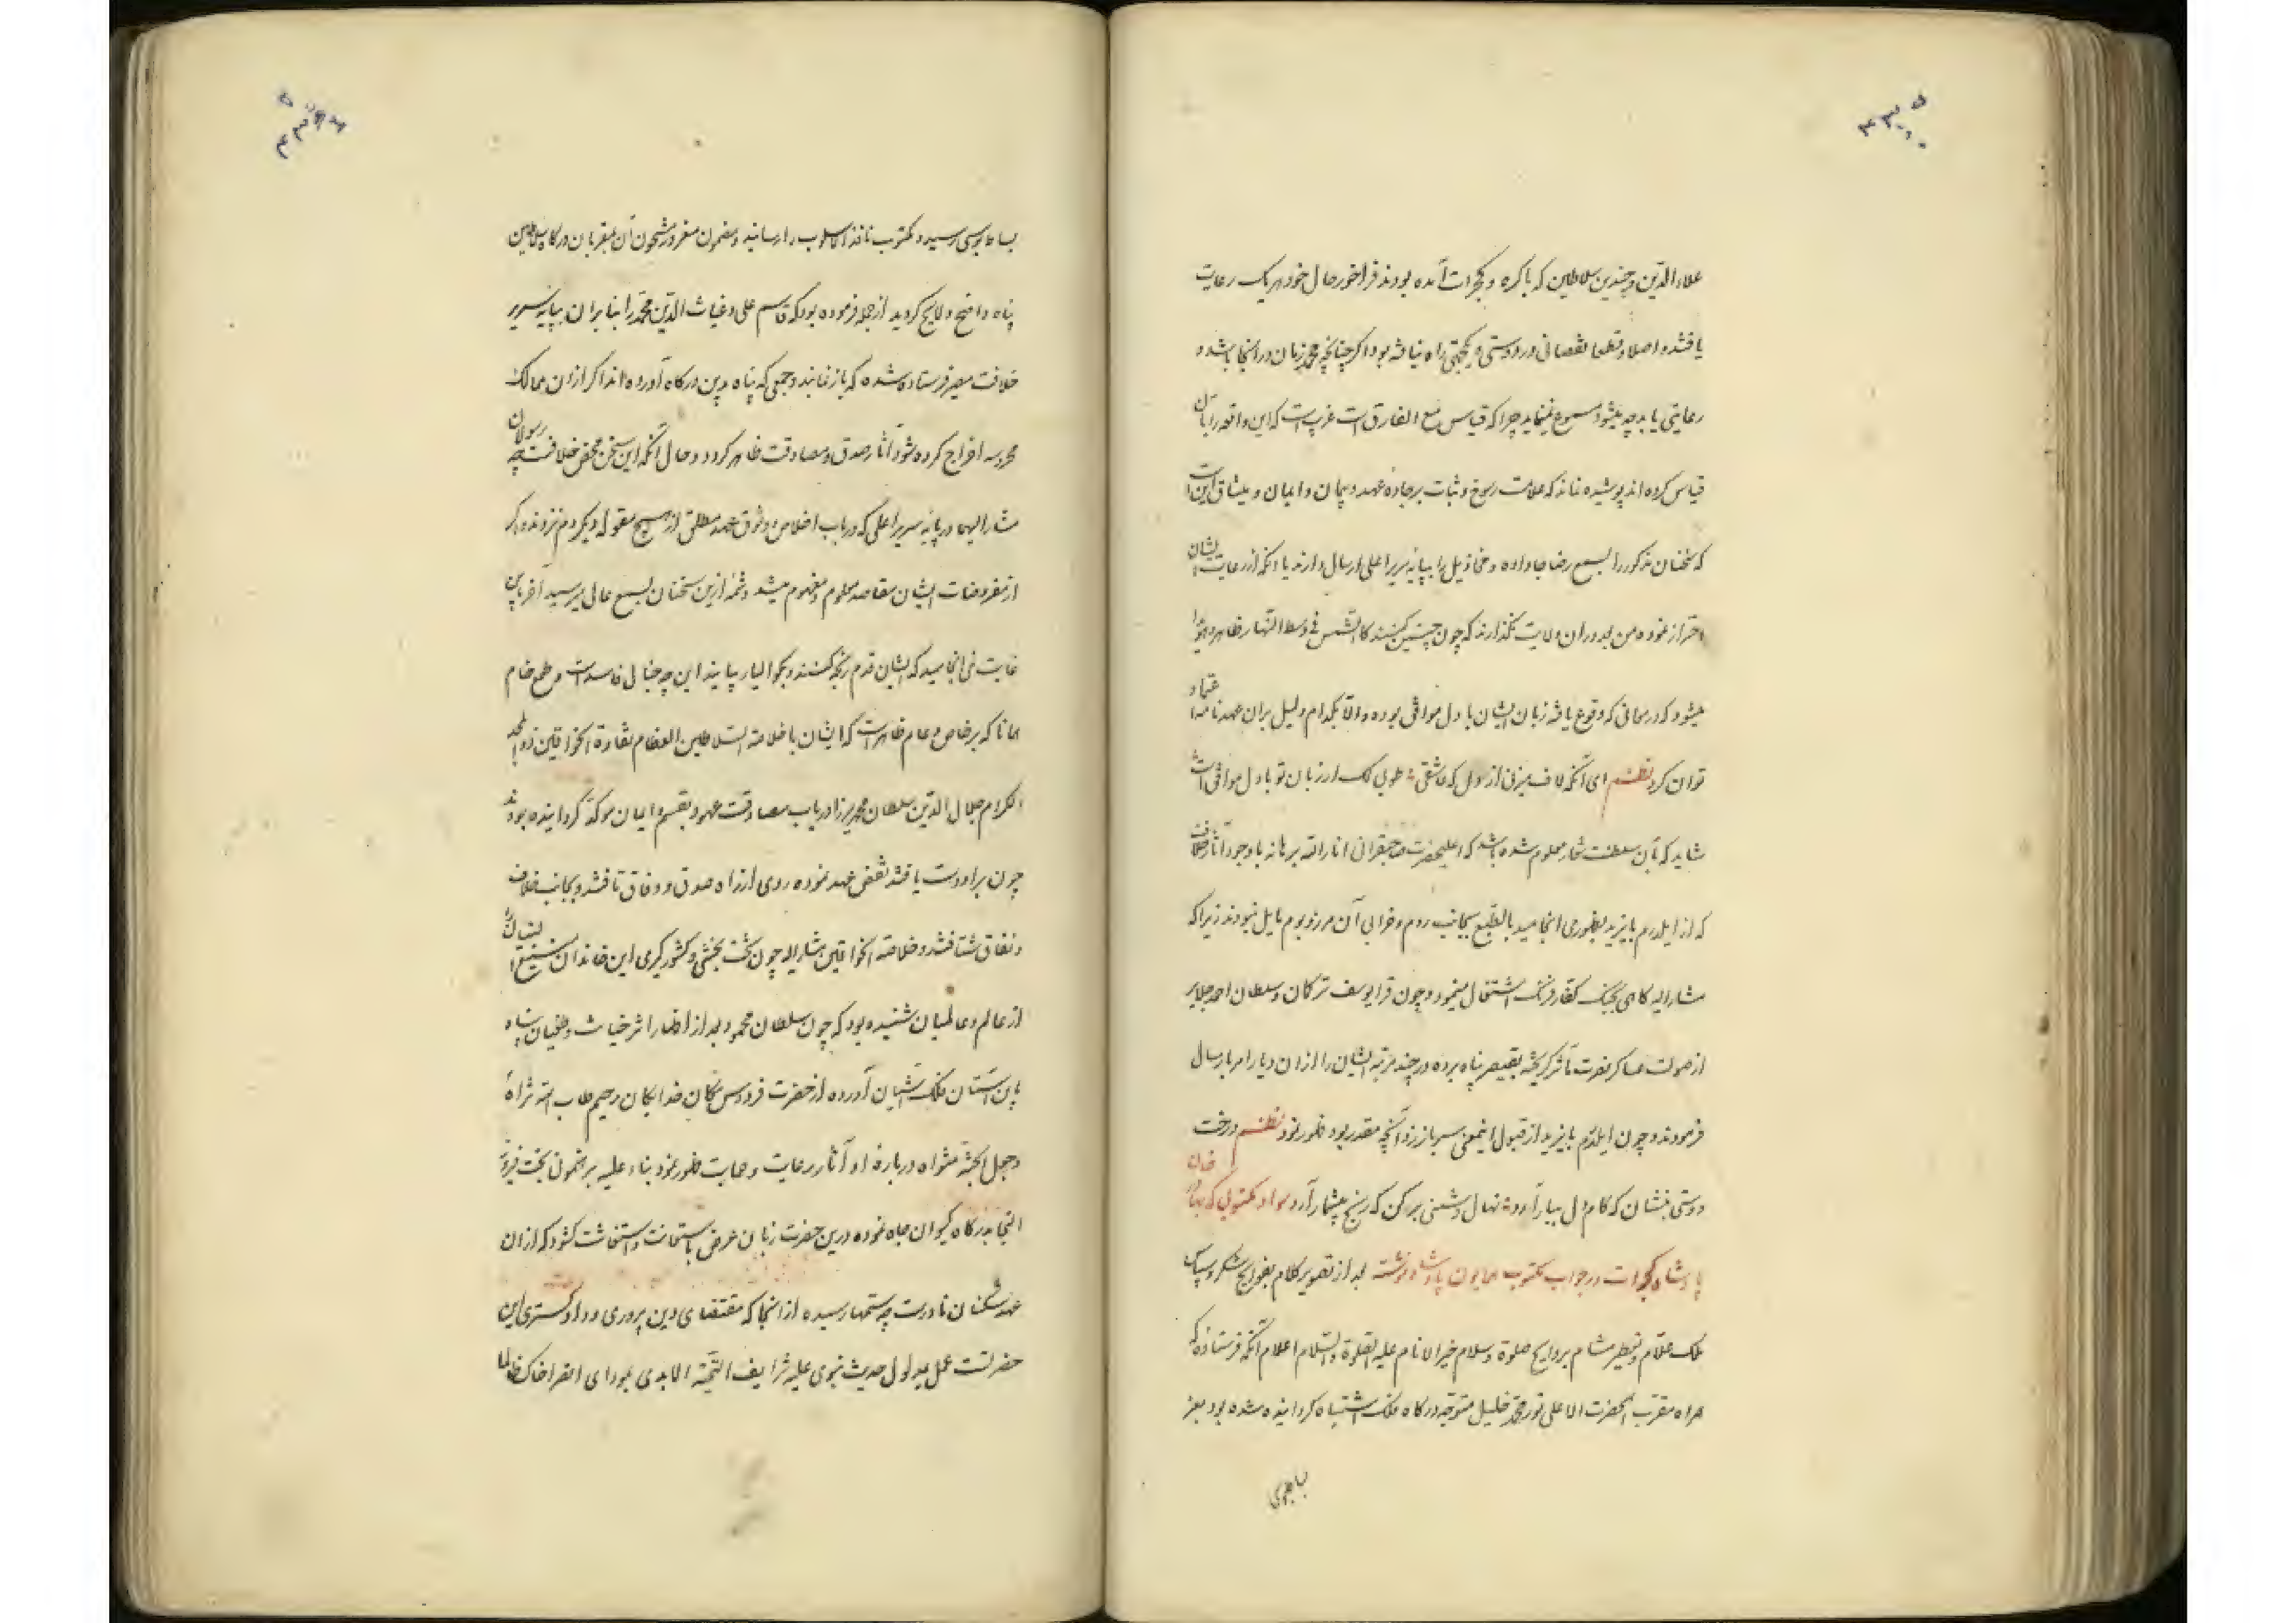 علاء الدین و چندین سلاطین که باکره و بگجرات آمده بودند فراخور حال خود هر یک رعایت
یافتند و اصلا و قطعا نقصانی در دوستی و یکجهتی راه نیافته بود اگر چنانچه محمد زمان در انجا باشد و
رعایتی یابد چه میشود مسموع نمینماید چرا که قیاس مع الفارق است غریب است که این واقعه را بآن
قیاس کرده اند پوشیده نماند که علامت رسوخ و ثبات بر جاده عهد و پیمان و ایمان و میثاق این است
که سخنان مذکور را بسمع رضا جا داده و مخاذیل را بپایه سریر اعلی ارسال دارند یا آنکه از رعایت ایشان
احتراز نموده من بعد در ان ولایت نگذارند که چون چنین کنند کالشمس فی وسط النهار ظاهر و هویدا
میشود که در معانی که وقوع یافته زبان ایشان با دل موافق بوده و الا بکدام دلیل بران عهدنامه اعتماد
توان کرد نظم ای آنکه لاف میزنی از دل که عاشقی طوبی لک ار زبان تو با دل موافق است
شاید که بآن سلطنت شعار معلوم شده باشد که اعلیحضرت صاحبقرانی انار الله برهانه با وجود آثار خلاف
که از ایلدرم بایزید بظهوری انجامید بالطبع بجانب روم و خرابی آن مرز و بوم مایل نبودند زیرا که
مشار الیه کاهی بجنک کفار فرنک اشتغال مینمود و چون قرا یوسف ترکمان و سلطان احمد جلایر
از صولت عساکر نصرت مآثر کریخته بقیصر پناه برده در چند مرتبه ایشان را ازان دیار امر بارسال
فرمودند و چون ایلدرم بایزید از قبول اینمعنی سر باز زد آنچه مقدر بود ظهور نمود نظم درخت
دوستی بنشان که کام دل ببار آرد نهال دشمنی برکن که رنج بیشمار آرد سواد مکتوبی که بهادر خان
پادشاه گجرات در جواب مکتوب همایون پادشاه نوشته بعد از تصویر کلام بفوایح شکر و سپاس
ملک علام و تعطیر مشام بروایح صلوة و سلام خیر الانام علیه الصلوة و السلام اعلام آنکه فرستاده که
همراه مقرب الحضرت العلی نور محمد خلیل متوجه درکاه فلک اشتباه کردانیده شده بود بعز
بساط بوسی رسید و مکتوب نافذ الاسلوب را رسانید و مضمون آن مقربان درکاه سلاطین
پناه واضح و لایح کردید از جمله فرموده بود که قاسم علی و غیاث الدین محمد را بنا بران بپایه سریر
خلافت مصیر فرستاده شده که باز نمایند و جمعی که پناه بدین درکاه آورده اند اکر ازان ممالک
محروسه اخراج کرده شود آثار صدق و مصادقت ظاهر کردد و حال آنکه این سخن محض خلافست چه رسولان
مشار الیهما در پایه سریر اعلی که در باب اخلاص و وثوق عهد مطلق از هیچ مقوله دیکر دم نزدند و اکر
از مفروضات ایشان مقاصد معلوم و مفهوم میشد و شمه ازین سخنان بسمع عالی میرسید آخر باین
غایت نمی انجامید که ایشان قدم رنجه کنند و بکوالیار بیایند این چه خیال فاسد است و طمع خام
همانا که بر خاص و عام ظاهر است که ایشان با خلاصة السلاطین العظام نقاوة الخواقین ذو المجد
الکرام جلال الدین سلطان محمد میرزا در باب مصادقت عهود بقسم و ایمان موکد کردانیده بودند
چون براو دست یافتند نقض عهد نموده روی از راه صدق و وفاق تافتند و بجانب خلاف
و نفاق شتافتند و خلاصة الخواقین مشار الیه چون تخت بخشی و کشورکیری این خاندان
از عالم و عالمیان شنیده بود که چون سلطان محمود بعد از اظهار اثر خیانت و طغیان پناه
باین آستان ملک آشیان آورده از حضرت فردوس مکان خدایکان رحیم طاب الله ثراه
و جعل الجنة مثواه درباره او آثار رعایت و حمایت ظهور نمود بناء علیه برهنمونی بخت فیروز
التجا بدرکاه کیوان جاه نموده درین حضرت زبان عرض باستعانت و استغاثت کشود که ازان
عهد شکنان نادرست چه ستمها رسیده از انجا که مقتضای دین پروری و داد کستری این
حضرتست عمل بمدلول حدیث نبوی علیه شرایف التحیة الابدی بمودای انصر اخاک ظالما